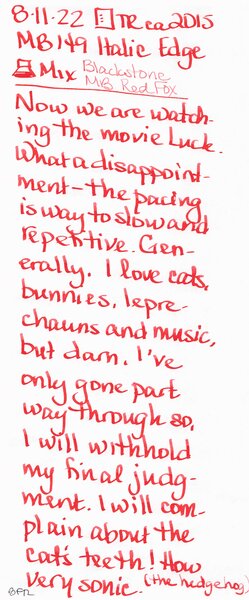 8-11-22 TR ca 2015
MB 149 Italic Edge
Mix Blackstone
MB Red Fox
Now we are watch-
ing the movie Luck.
What a disappoint-
ment - the pacing
is way to slow and
repetitive. Gen-
erally, I love cats,
bunnies, lepre-
chauns and music,
but darn, I've
only gone part
way through so,
I will withhold
my final judg-
ment. I will com-
plain about the
cat's teeth! How
very sonic. (the hedgehog)